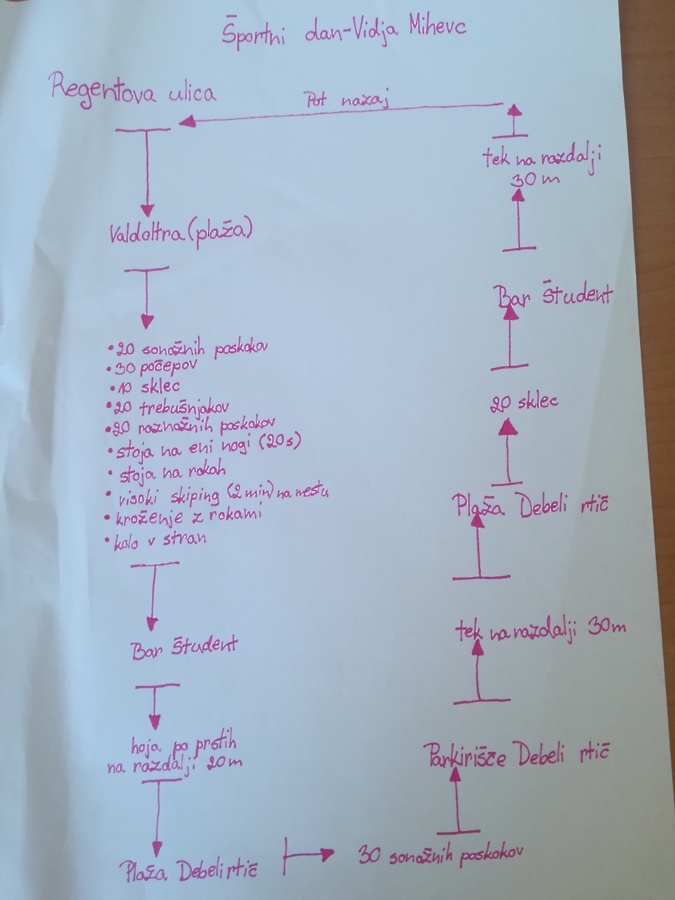 Športni dan-Vidja Mihevc
Regentova ulica
Pot nazaj
Valdoltra (plaža)
• 20 sonožnih poskokov
• 30 počepov
• 10 sklec
• 20 trebušnjakov
• 20 raznožnih poskokov
• stoja na eni nogi (20s)
• stoja na rokah
• visoki skiping (2 min) na mestu
• kroženje z rokami
• kolo v stran
Bar Študent
hoja po prstih
na razdalji 20m
Plaža Debeli rtič
30 sonožnih poskokov
Parkirišče Debeli rtič
tek na razdalji 30m
Plaža Debeli rtič
20 sklec
Bar Študent
tek na razdalji
30m